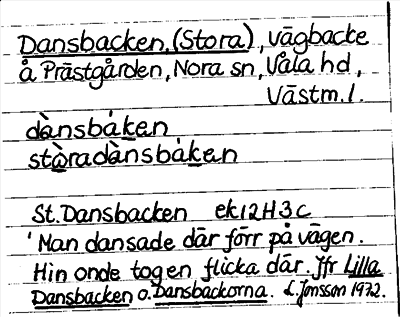 Dansbacken, (Stora), vägbacke
å Prästgården, Nora sn, Våla hd,
Västm. l.
dànsbáken
stòradànsbáken
St. Dansbacken ek 12H3c
'Man dansade där förr på vägen.
Hin onde tog en flicka där. Jfr Lilla
Dansbacken o. Dansbackorna. L. Jonsson 1972.